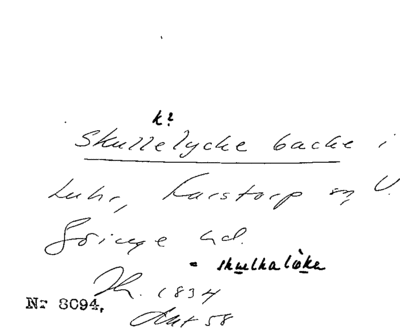 k?
Skullelycke backe i
Luhr, Karstorp sn, V.
Göinge hd.
= skulkalöka
Th. 1834
Nr 8094,
Akt 58